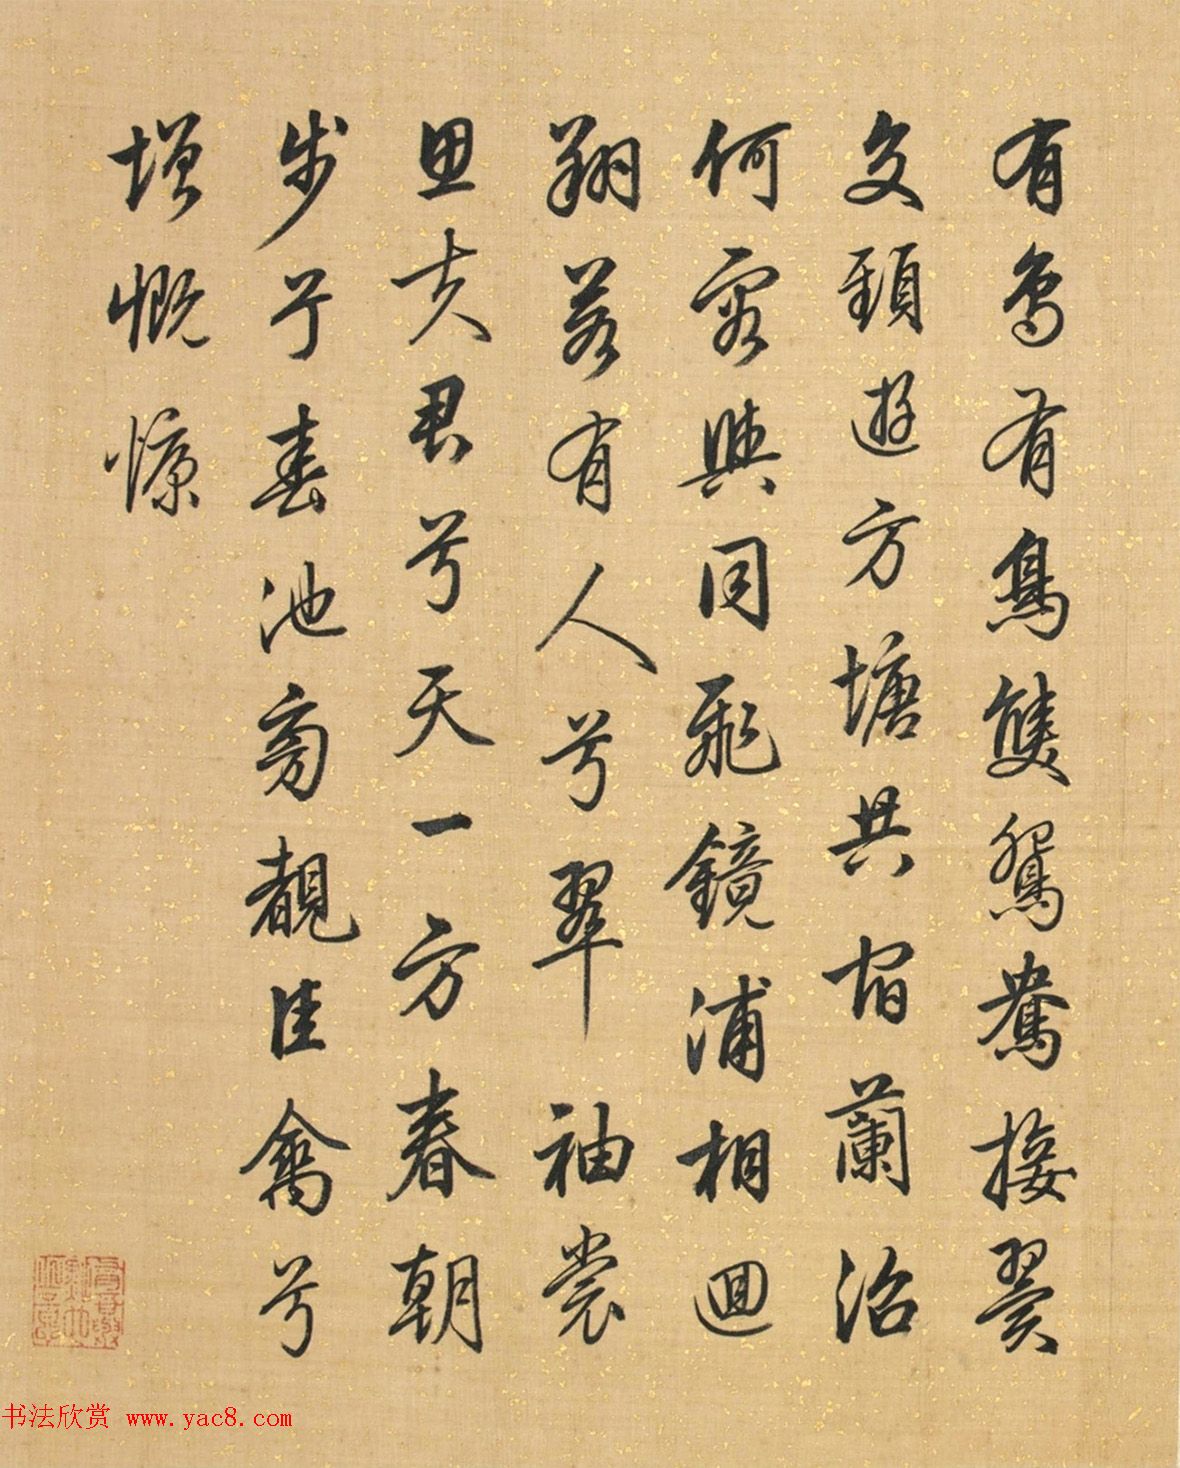 有鳥有鳥雙鴛鴦接翼
交頸遊方塘共宿蘭沼
何容與同飛鏡浦相迴
翔若有人兮翠袖裳
思夫君兮天一方春朝
步兮春池旁覩佳禽兮
增慨慷
书法欣赏 www.yac8.com